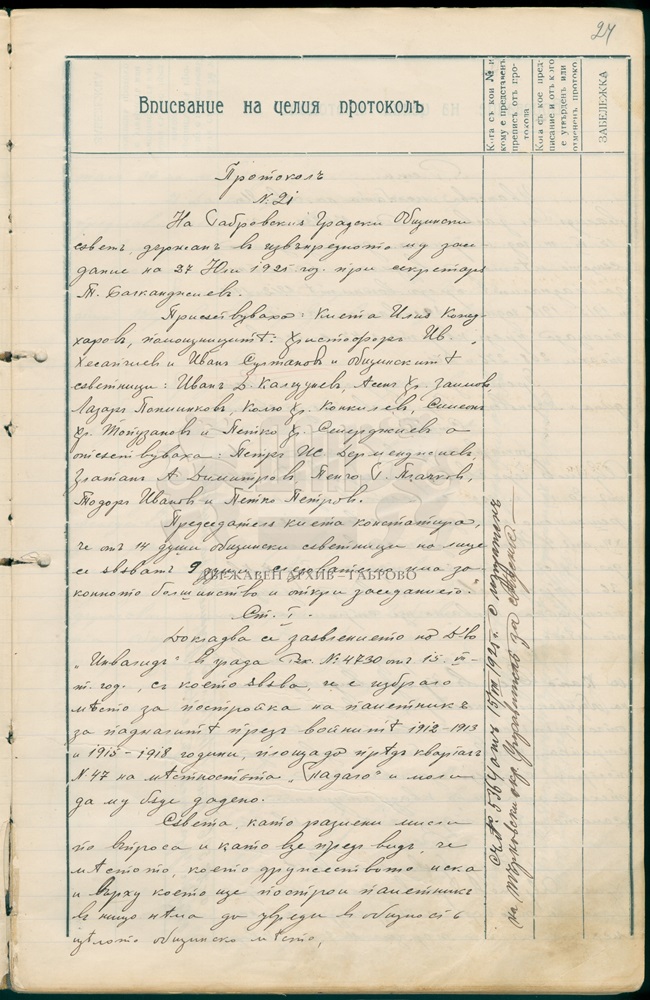 24
Вписвание на целия протоколъ
Кога съ кой № и кому е представенъ преписъ отъ протокола
Кога съ кое предписание и отъ кого е утвърденъ или отмененъ протокола
ЗАБЕЛЕЖКА
Протоколъ
N. 21
На Габровския Градски Общински
съветъ, държанъ в извънредното му засе-
дание на 27 Юли 1925 год. при секретаръ
Т. Балканджиевъ.
Присѫствуваха: Кмета Илия Конд-
харовъ, помощницитѣ: Христофоръ Ив.
Хесапчиев и Иванъ Султановъ и общинскитѣ
съветници: Иванъ Д. Калцуневъ, Асенъ Хр. Заимов,
Лазаръ Попиликовъ, Колю Хр. Конкилевъ, Симеонъ
Хр. Топузанов и Петко Х. Сперджиевъ а
отсѫствуваха: Петръ Ис. Дерменджиевъ,
Златанъ А. Димитровъ, Пенчо С. Плачков,
Тодоръ Иванов и Петко Петров.
Председателя кмета констатира,
че отъ 14 души общински съветници на лице
се явяватъ 9 души, следователно има за-
конното болшинство и откри заседанието.
ДЪРЖАВЕН АРХИВ – ГАБРОВО
Ст. I.
Докладва се заявлението на Д-во
„Инвалидъ" в града Вх. № 4730 отъ 15. VII-
т. год., съ което явява, че е избрало
мѣсто за постройка на паметникъ
за падналитѣ презъ войнитѣ 1912-1913
и 1915-1918 години, площада предъ кварталъ
N 47 на мѣстностьта „Падало" и моли
да му бѫде дадено.
Съвета, като размени мисли
по въпроса и като взе предъ видъ, че
мѣстото, което дружеството иска
и върху което ще построи паметникъ
в нищо нѣма да увреди в общность
цѣлото общинско мѣсто,
Съ № 5364 отъ 15/VIII 1925 г. е изпратенъ
на Търновски окр. Управитель за сведение.